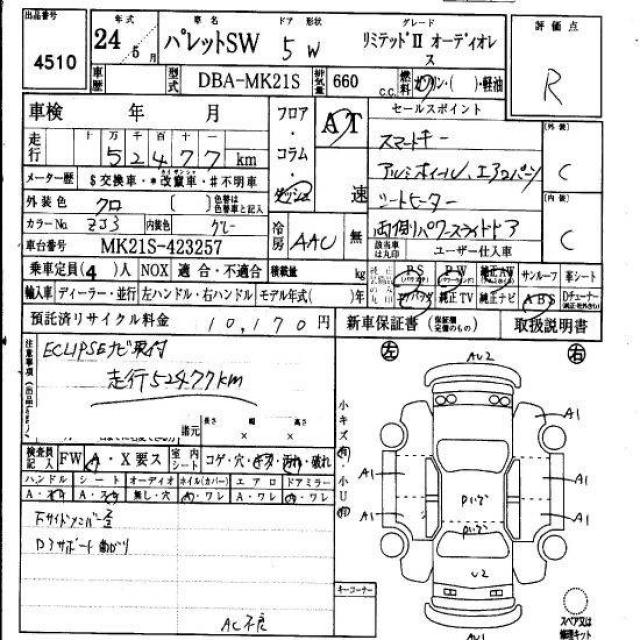 出品番号 4510
年式 24 / 5 月
車名 パレットSW
ドア 形状 5 W
グレード リミテッドⅡ オーディオレス
評価点 R
車歴
型式 DBA-MK21S
排気量 660 c.c.
燃料 ガソリン・( )・軽油
車検 年 月
フロア・コラム・ダッシュ
AT
速
セールスポイント
スマートキー
アルミホイール、エアロパーツ
シートヒーター
両側パワースライドドア
外装 C
内装 C
走行 十 万 千 百 十 一
52477 km
メーター歴 $交換車・*改竄車・#不明車
外装色 クロ ( ) 色替は色替車と記入
カラーNo. ZJ3 内装色 グレー
冷房 AAC 無
該当車は丸印 ユーザー仕入車
車台番号 MK21S-423257
乗車定員(4)人 NOX 適合・不適合 積載量 kg
PS PW 純正AW サンルーフ 革シート
輸入車 ディーラー・並行 左ハンドル・右ハンドル モデル年式( )年
エアバッグ 純正TV 純正ナビ ABS Dチューナー
預託済リサイクル料金 10,170円
新車保証書 (保証書完備のもの) 取扱説明書
注意事項
ECLIPSEナビ取付
走行52477km
諸元 長さ 幅 高さ
× ×
検査員記入 FW A・X要ス 室内シート コゲ・穴・キズ・汚れ・破れ
ハンドル シート オーディオ ホイル(カバー) エアロ ドアミラー
A・スレ A・スレ 無し・穴 A・ワレ A・ワレ A・ワレ
D1サポート曲がり
AC不良
左 右
AU2
小キズ有・小U有
A1
A1
A1
A1
A1
U2
AU1
キーコーナー
スペア又は修理キット